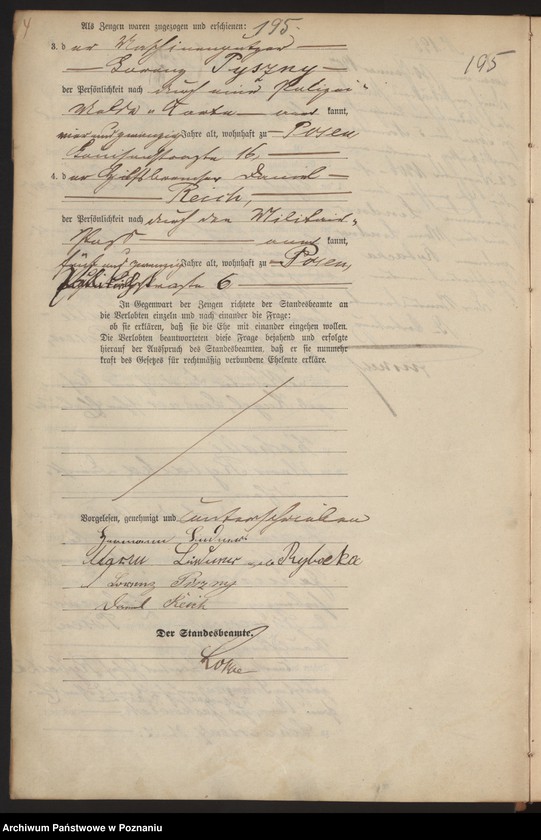 4
Als Zeugen waren zugezogen und erschienen: 195.
195
3. der Maschinenputzer
Lorenz Pyszny
der Persönlichkeit nach durch eine Polizei-
Melde-Karte anerkannt,
vierundzwanzig Jahre alt, wohnhaft zu Posen
16,
4. der Hilfsbremser Daniel
Reich,
der Persönlichkeit nach durch den Militair-
Pass anerkannt,
fünfundzwanzig Jahre alt, wohnhaft zu Posen,
straße 6
In Gegenwart der Zeugen richtete der Standesbeamte an
die Verlobten einzeln und nach einander die Frage:
ob sie erklären, daß sie die Ehe mit einander eingehen wollen.
Die Verlobten beantworteten diese Frage bejahend und erfolgte
hierauf der Ausspruch des Standesbeamten, daß er sie nunmehr
kraft des Gesetzes für rechtmäßig verbundene Eheleute erkläre.
Vorgelesen, genehmigt und unterschrieben
Hermann Lindner
Lindner geb Rybacka
Lorenz Piszny
Daniel Reich
Der Standesbeamte.
Archiwum Państwowe w Poznaniu